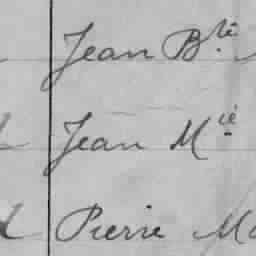 Jean B.te
Jean M.ie
Pierre Ma